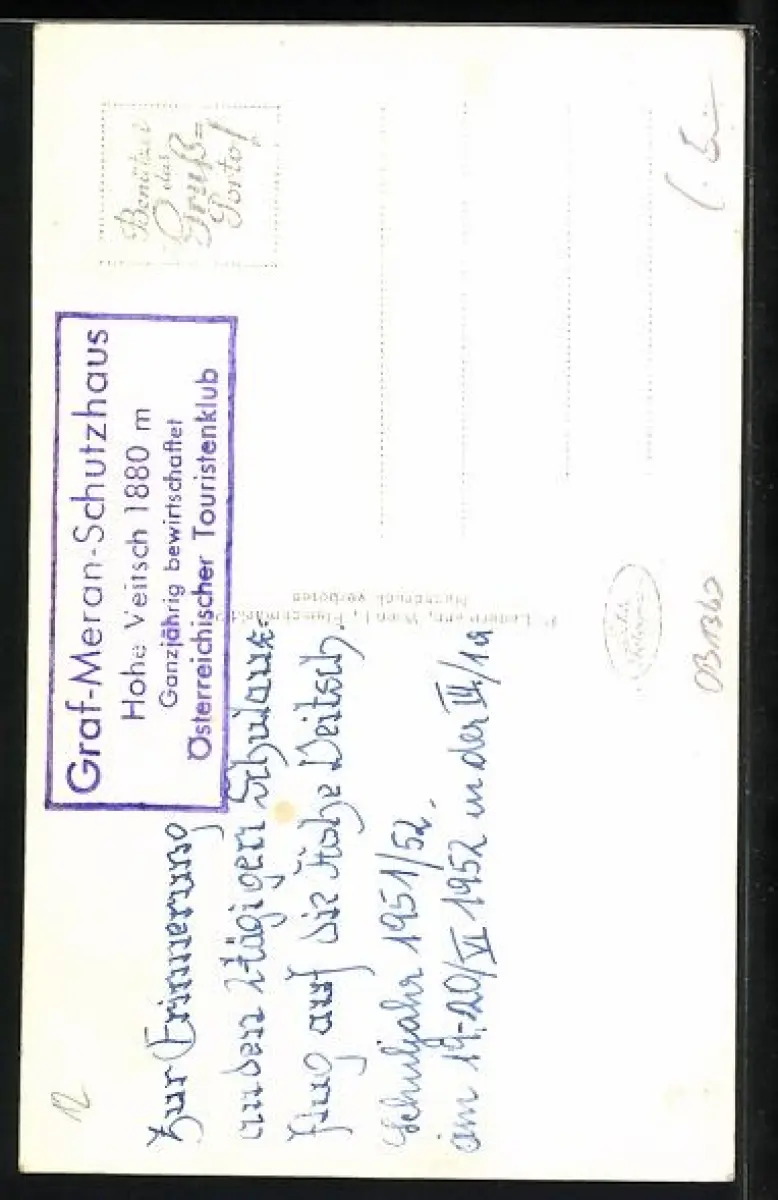 Benützet
das
Gruß=
Porto!
Graf-Meran-Schutzhaus
Hohe Veitsch 1880 m
Ganzjährig bewirtschaftet
Österreichischer Touristenklub
Zur Erinnerung
an den 2tägigen Schulaus-
flug auf die Hohe Veitsch.
Schuljahr 1951/52.
am 19.-20/VI 1952 in der III/1a
P. Ledermann, Wien I., Fleischmarkt
Nachdruck verboten
OB1360
12